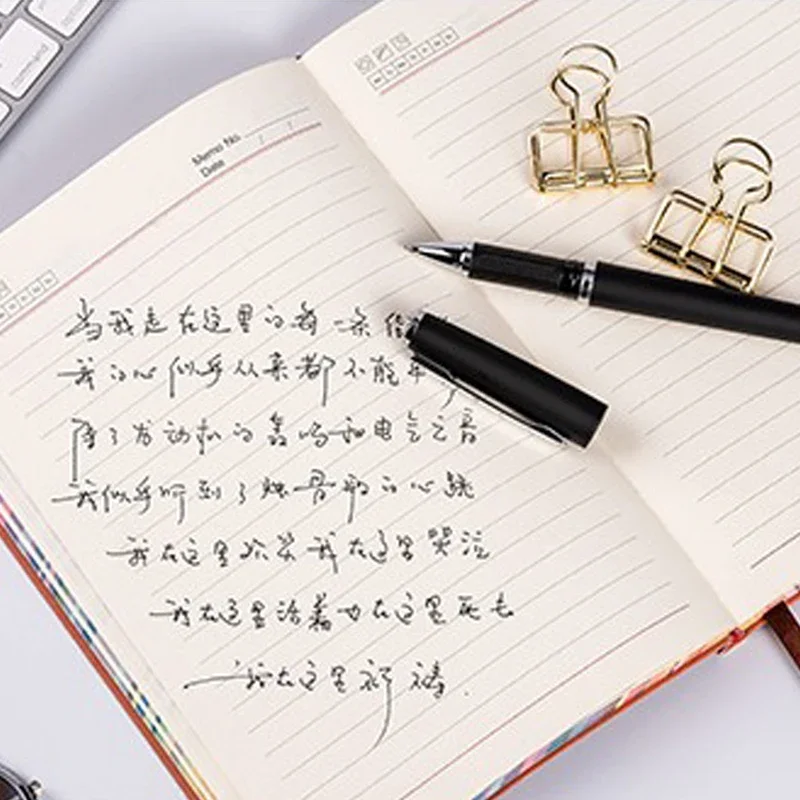 command
Memo No.
Date / /
当我走在这里的每一条
我的心似乎从来都不能
除了发动机的轰鸣和电气之音
我似乎听到了烛骨般的心跳
我在这里欢笑我在这里哭泣
我在这里活着也在这里死去
我在这里祈祷.